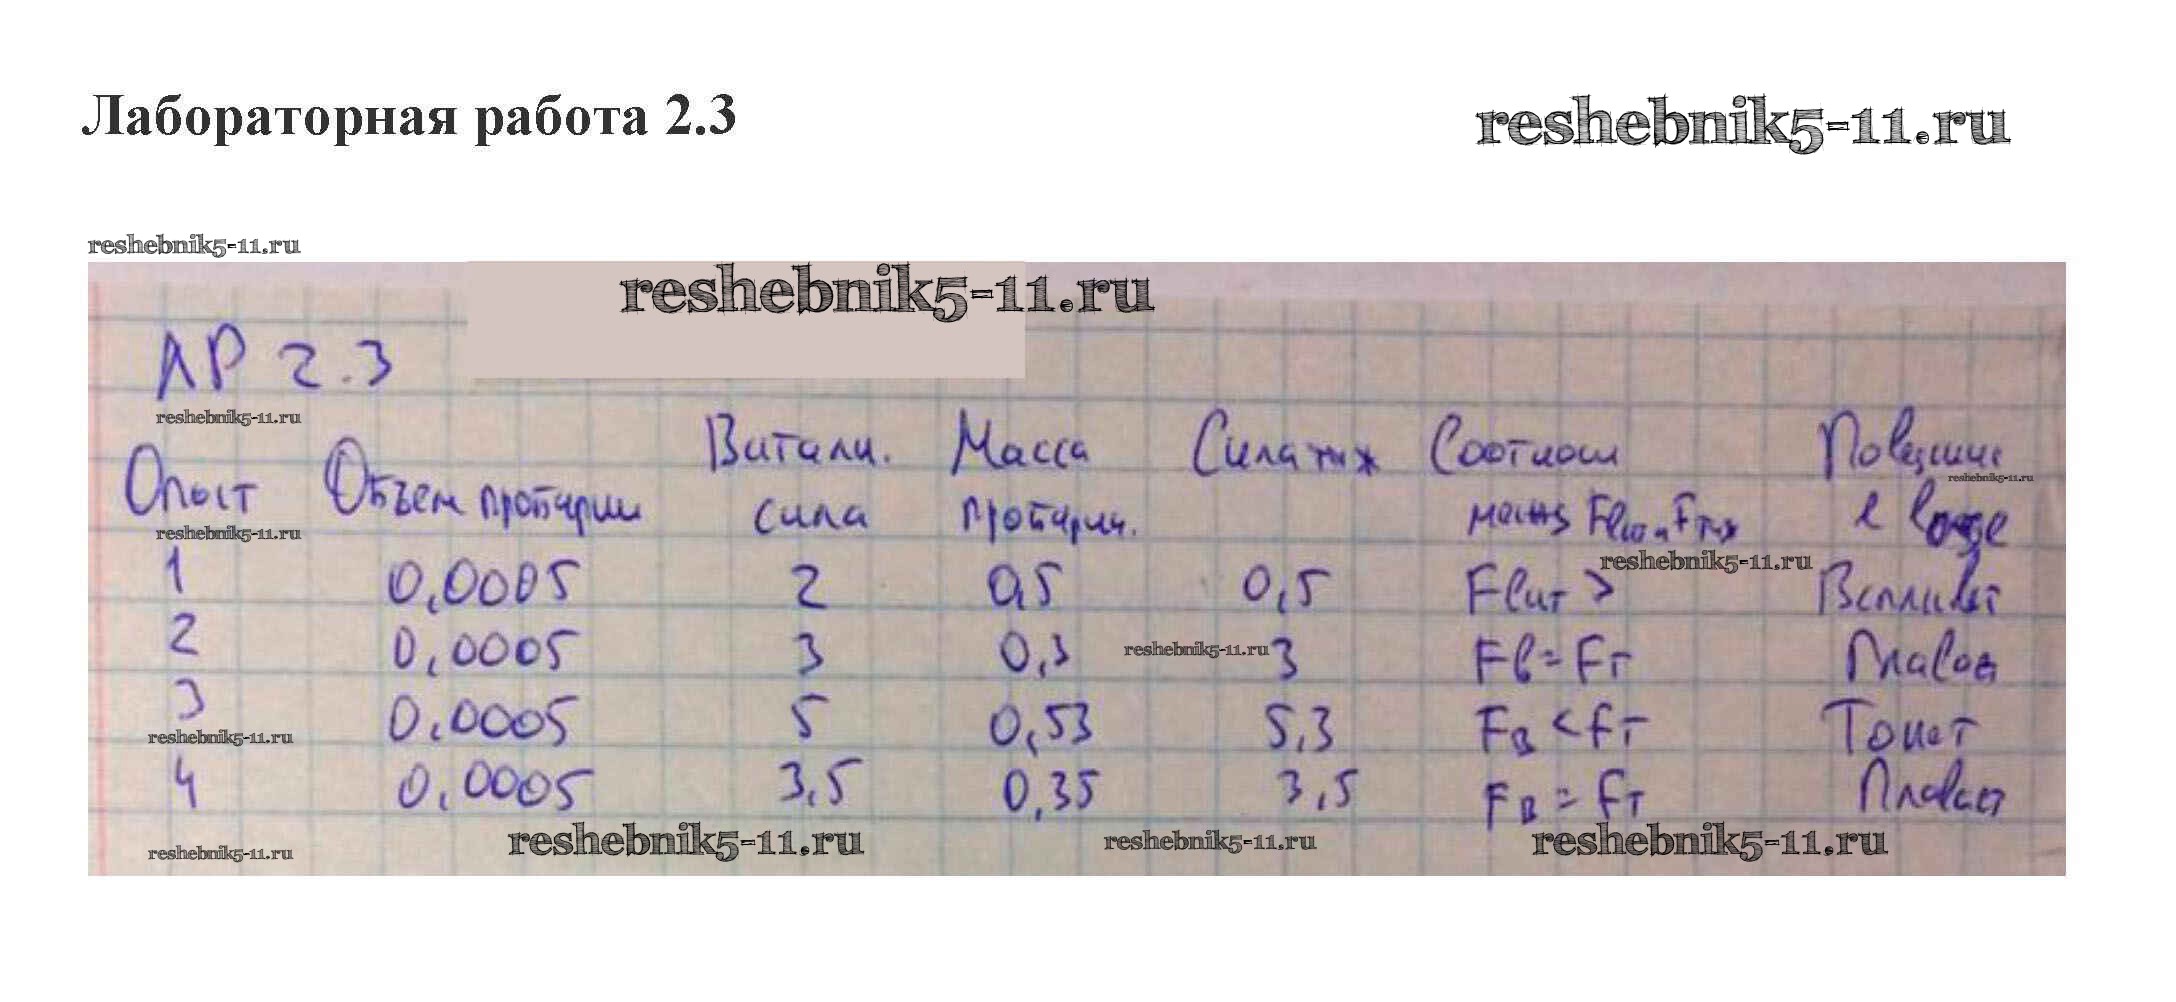 Лабораторная работа 2.3
reshebnik5-11.ru
reshebnik5-11.ru
reshebnik5-11.ru
ЛР 2.3
reshebnik5-11.ru
Витали. Масса Сила тяж Соотнош
Опыт Объем сила F Fтяж в воде
reshebnik5-11.ru
reshebnik5-11.ru
reshebnik5-11.ru
1 0,0005 2 0,5 0,5 Fвыт > Всплывает
2 0,0005 3 0,3 3 Fв = Fт Плавает
reshebnik5-11.ru
3 0,0005 5 0,53 5,3 Fв < Fт Тонет
reshebnik5-11.ru
4 0,0005 3,5 0,35 3,5 Fв = Fт Плавает
reshebnik5-11.ru
reshebnik5-11.ru
reshebnik5-11.ru
reshebnik5-11.ru